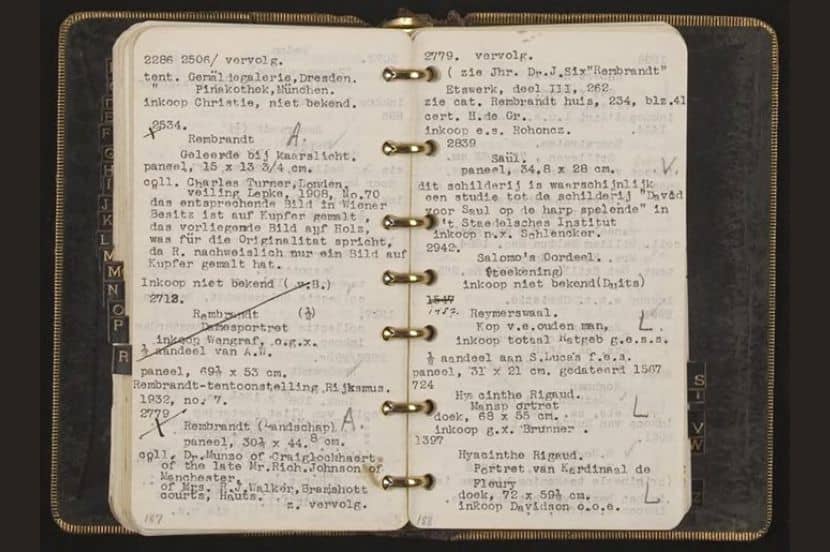 2286 2506/ vervolg.
tent. Gemäldegalerie,Dresden.
" Pinakothek,München.
inkoop Christie, niet bekend.
2534.
Rembrandt A.
Geleerde bij kaarslicht.
paneel, 15 x 13 3/4 cm.
coll. Charles Turner,Londen.
veiling Lepke, 1908, No.70
das entsprechende Bild in Wiener
Besitz ist auf Kupfer gemalt ,
das vorliegende Bild auf Holz,
was für die Originalitat spricht,
da R. nachweislich nur ein Bild auf
Kupfer gemalt hat.
Inkoop niet bekend ( v.B.)
2712.
Rembrandt (½)
Damesportret
inkoop Wengraf, o.g.x.
½ aandeel van A.W.
paneel, 69½ x 53 cm.
Rembrandt-tentoonstelling,Rijksmus.
1932, no. 7.
2779
Rembrandt (Landschap) A.
paneel, 30½ x 44.8 cm.
coll. Dr.Munzo of Craiglockhaert
of the late Mr.Rich.Johnson of
Manchester.
of Mrs. R.J.Walker,Bramshott
courts, Hants.
z. vervolg.
187
2779. vervolg.
( zie Jhr. Dr.J.Six"Rembrandt"
Etswerk, deel III, 262
zie cat. Rembrandt huis, 234, blz.41
cert. H.de Gr.
inkoop e.s. Rohoncz.
2839
Saül.
paneel, 34,8 x 28 cm. V.
dit schilderij is waarschijnlijk
een studie tot de schilderij "David
voor Saul op de harp spelende" in
't Staedelsches Institut
inkoop n.x. Schlencker.
2942.
Salomo's Oordeel.
(teekening)
inkoop niet bekend(Duits)
1547
1957. Reymerswaal.
Kop v.e.ouden man, L.
inkoop totaal Ratgeb g.e.s.s.
½ aandeel aan S.Lucas f.e.s.
paneel, 31 x 21 cm, gedateerd 1567
724
Hyacinthe Rigaud.
Mansportret
doek, 68 x 55 cm. L.
inkoop g.x. Brunner .
1397
Hyacinthe Rigaud.
Portret van Kardinaal de
Fleury
doek, 72 x 59½ cm. L.
inkoop Davidson o.o.e.
188
F
G
H
I
J
K
L
M
M
N
O
P
R
S
T
V
W
Z